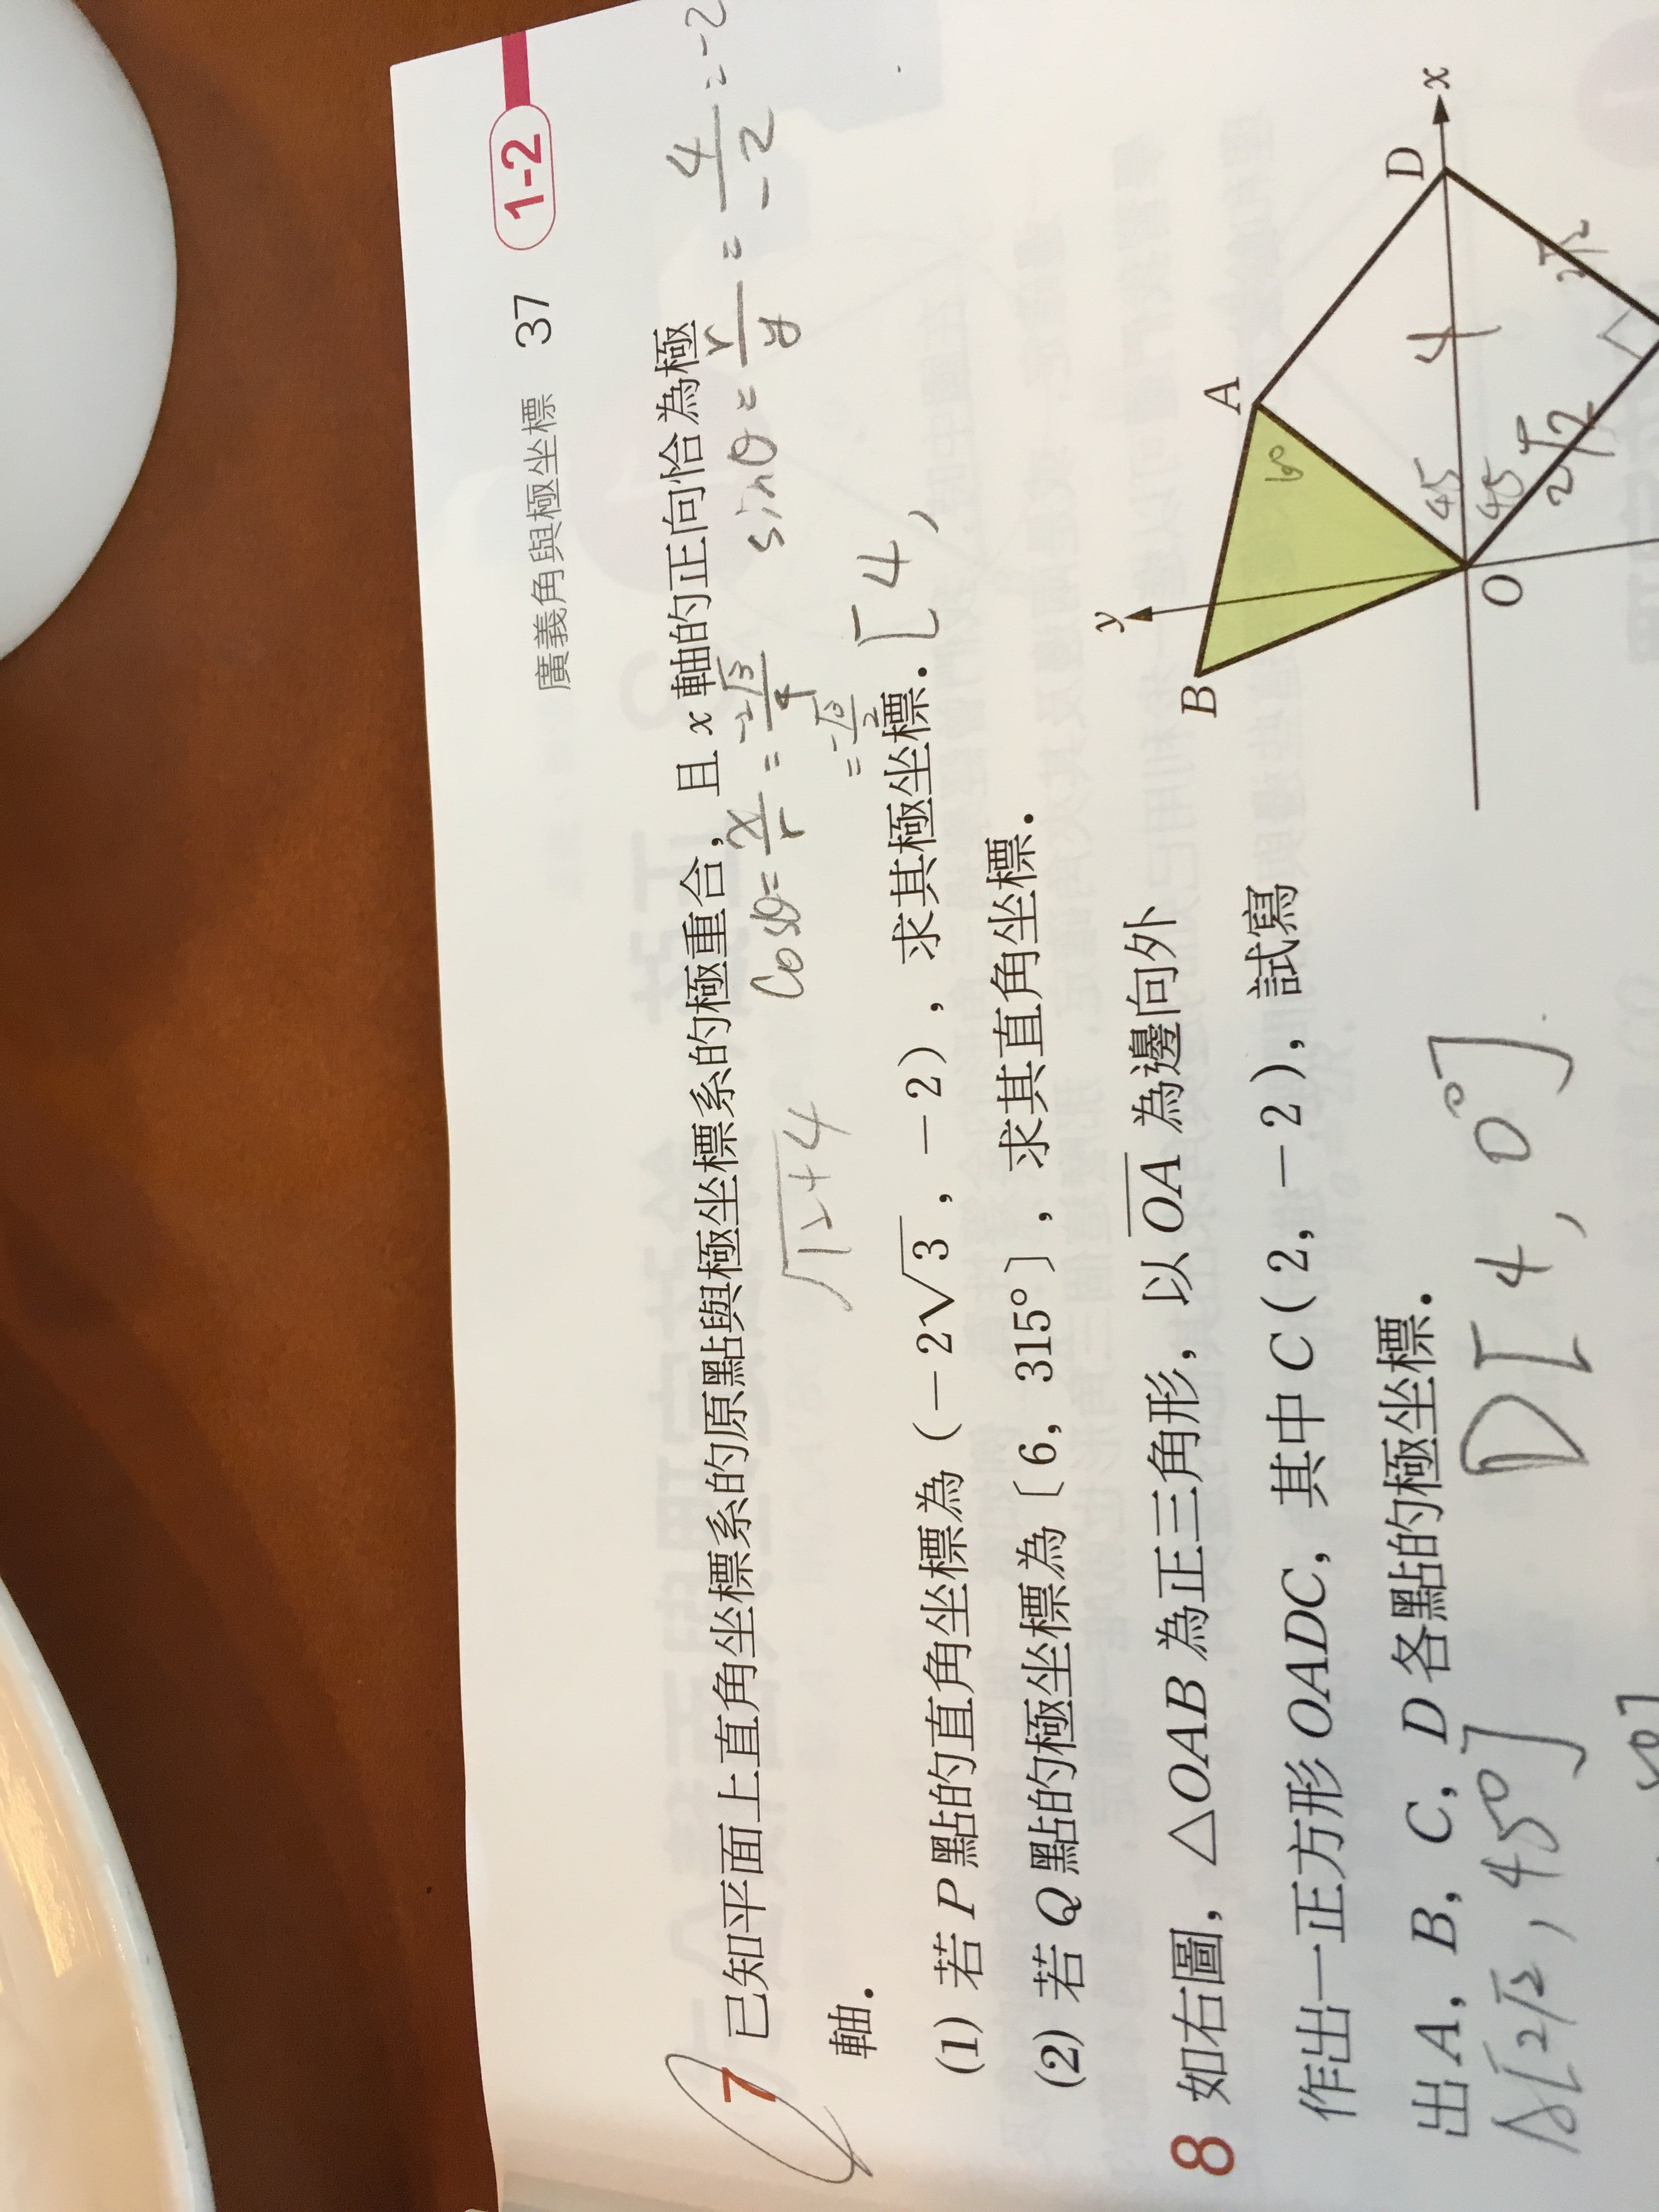 廣義角與極坐標 37 1-2
7 已知平面上直角坐標系的原點與極坐標系的極重合，且 x 軸的正向恰為極
軸.
√12+4 cosθ=x/r=-2√3/4 sinθ=r/y=4/-2=-2
=-√3/2
(1) 若 P 點的直角坐標為 (-2√3, -2)，求其極坐標. [4,
(2) 若 Q 點的極坐標為 [6, 315°]，求其直角坐標.
8 如右圖，△OAB 為正三角形，以 OA 為邊向外
作出一正方形 OADC，其中 C(2, -2)，試寫
出 A, B, C, D 各點的極坐標.
A[2√2, 45°] D[4, 0°]
y
B
A
60°
D
x
O
45
45
4
2√2
2√2